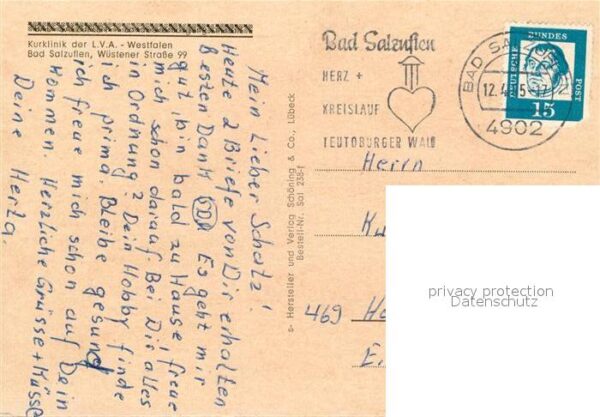 Kurklinik der L.V.A. - Westfalen
Bad Salzuflen, Wüstener Straße 99
Mein Lieber Schatz!
Heute 2 Briefe von Dir erhalten
Besten Dank Es geht mir
gut, bin bald zu Hause freue
mich schon darauf. Bei Dir alles
in Ordnung? Dein Hobby finde
ich prima. Bleibe gesund
ich freue mich schon auf Dein
Kommen. Herzliche Grüsse + Küsse
Deine Herta.
s- Hersteller und Verlag Schöning & Co., Lübeck
Bestell-Nr. Sal 238-f
Bad Salzuflen
HERZ +
KREISLAUF
TEUTOBURGER WALD
BAD SA
12.4.
4902
DEUTSCHE BUNDESPOST
15
Herrn
469
privacy protection
Datenschutz